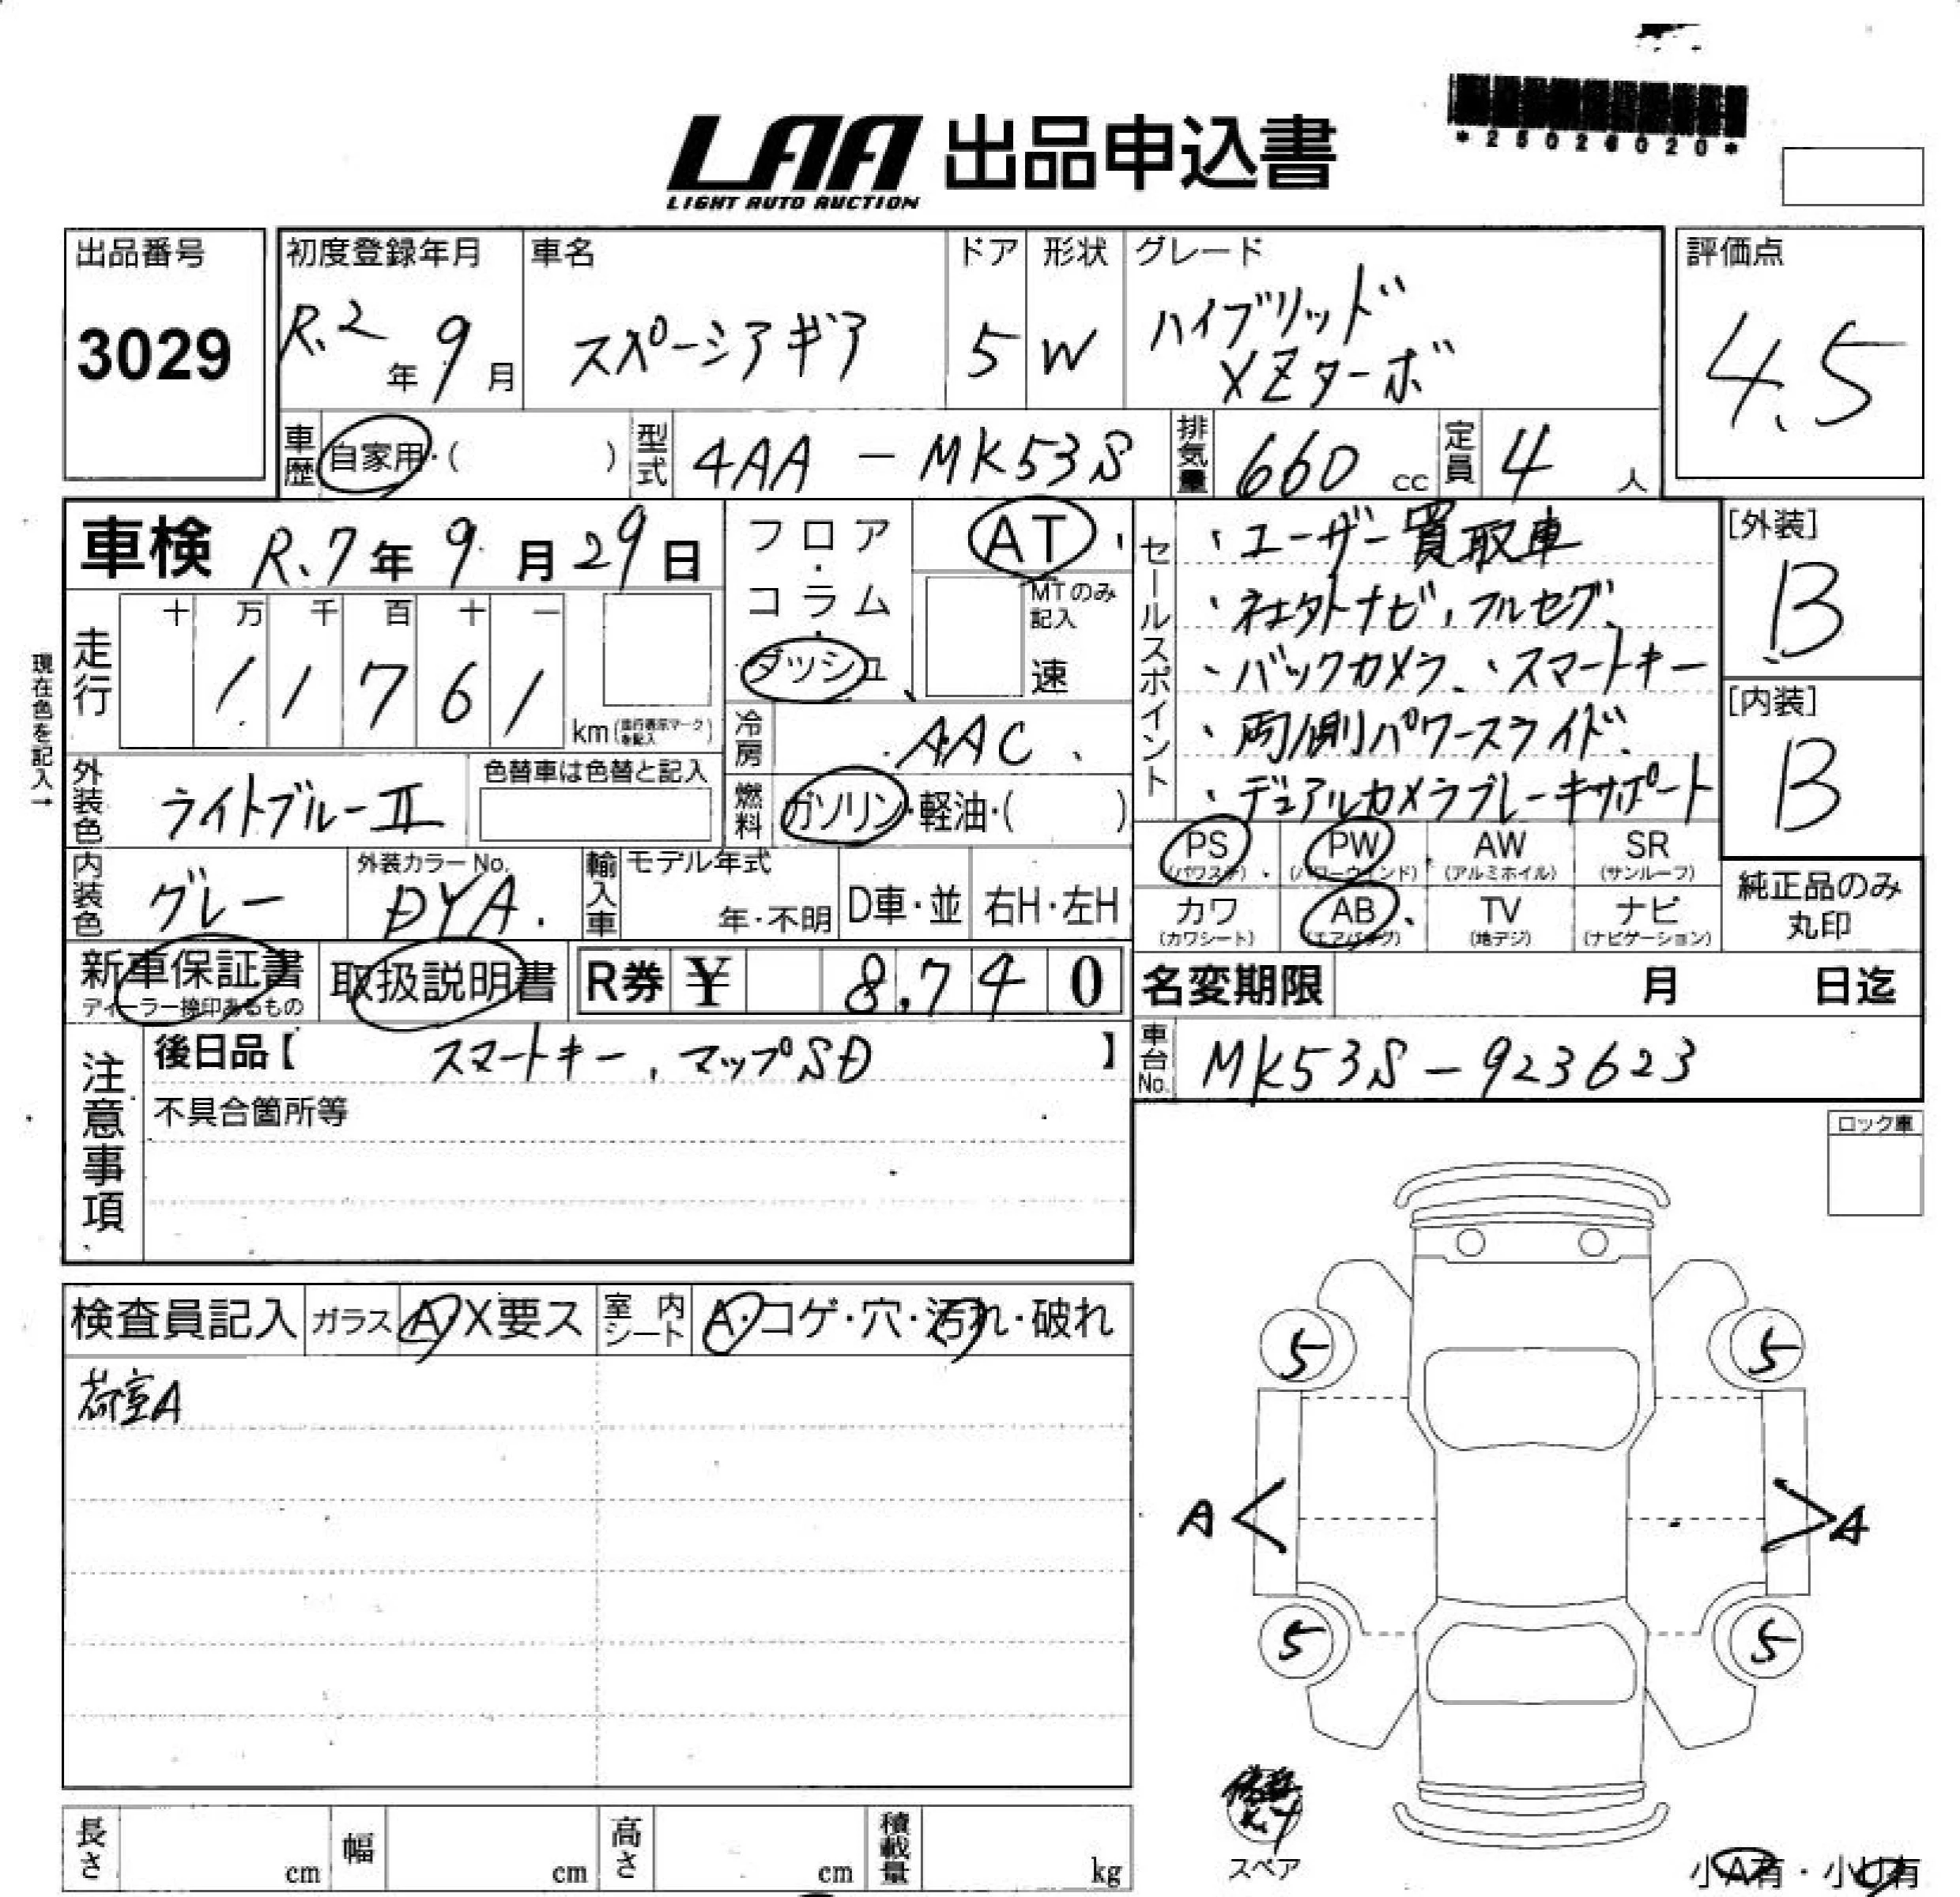 *25026020*
LAA 出品申込書
LIGHT AUTO AUCTION
出品番号
3029
初度登録年月
R.2年9月
車名
スペーシアギア
ドア
5
形状
W
グレード
ハイブリッド
XZターボ
評価点
4.5
車歴
自家用・( )
型式
4AA-MK53S
排気量
660 cc
定員
4 人
車検 R.7年9月29日
走行
十 万 千 百 十 一
1 1 7 6 1
km(走行表示マークを記入)
現在色を記入→
外装色
ライトブルーII
色替車は色替と記入
内装色
グレー
外装カラーNo.
DYA
輸入車
モデル年式
年・不明
D車・並
右H・左H
フロア・コラム・ダッシュ
AT
MTのみ記入
速
冷房
AAC
燃料
ガソリン・軽油・( )
セールスポイント
・ユーザー買取車
・社外ナビ、フルセグ、
・バックカメラ、・スマートキー
・両側パワースライド、
・デュアルカメラブレーキサポート
[外装]
B
[内装]
B
PS (パワステ)
PW (パワーウインド)
AW (アルミホイル)
SR (サンルーフ)
カワ (カワシート)
AB (エアバッグ)
TV (地デジ)
ナビ (ナビゲーション)
純正品のみ
丸印
新車保証書
ディーラー捺印あるもの
取扱説明書
R券 ¥ 8,740
名変期限 月 日迄
注意事項
後日品【 スマートキー、マップSD 】
不具合箇所等
車台No.
MK53S-923623
ロック車
検査員記入
ガラス
A X要ス
室内シート
A・コゲ・穴・汚れ・破れ
荷室A
5
5
A
A
5
5
スペア
小A有・小U有
長さ cm
幅 cm
高さ cm
積載量 kg